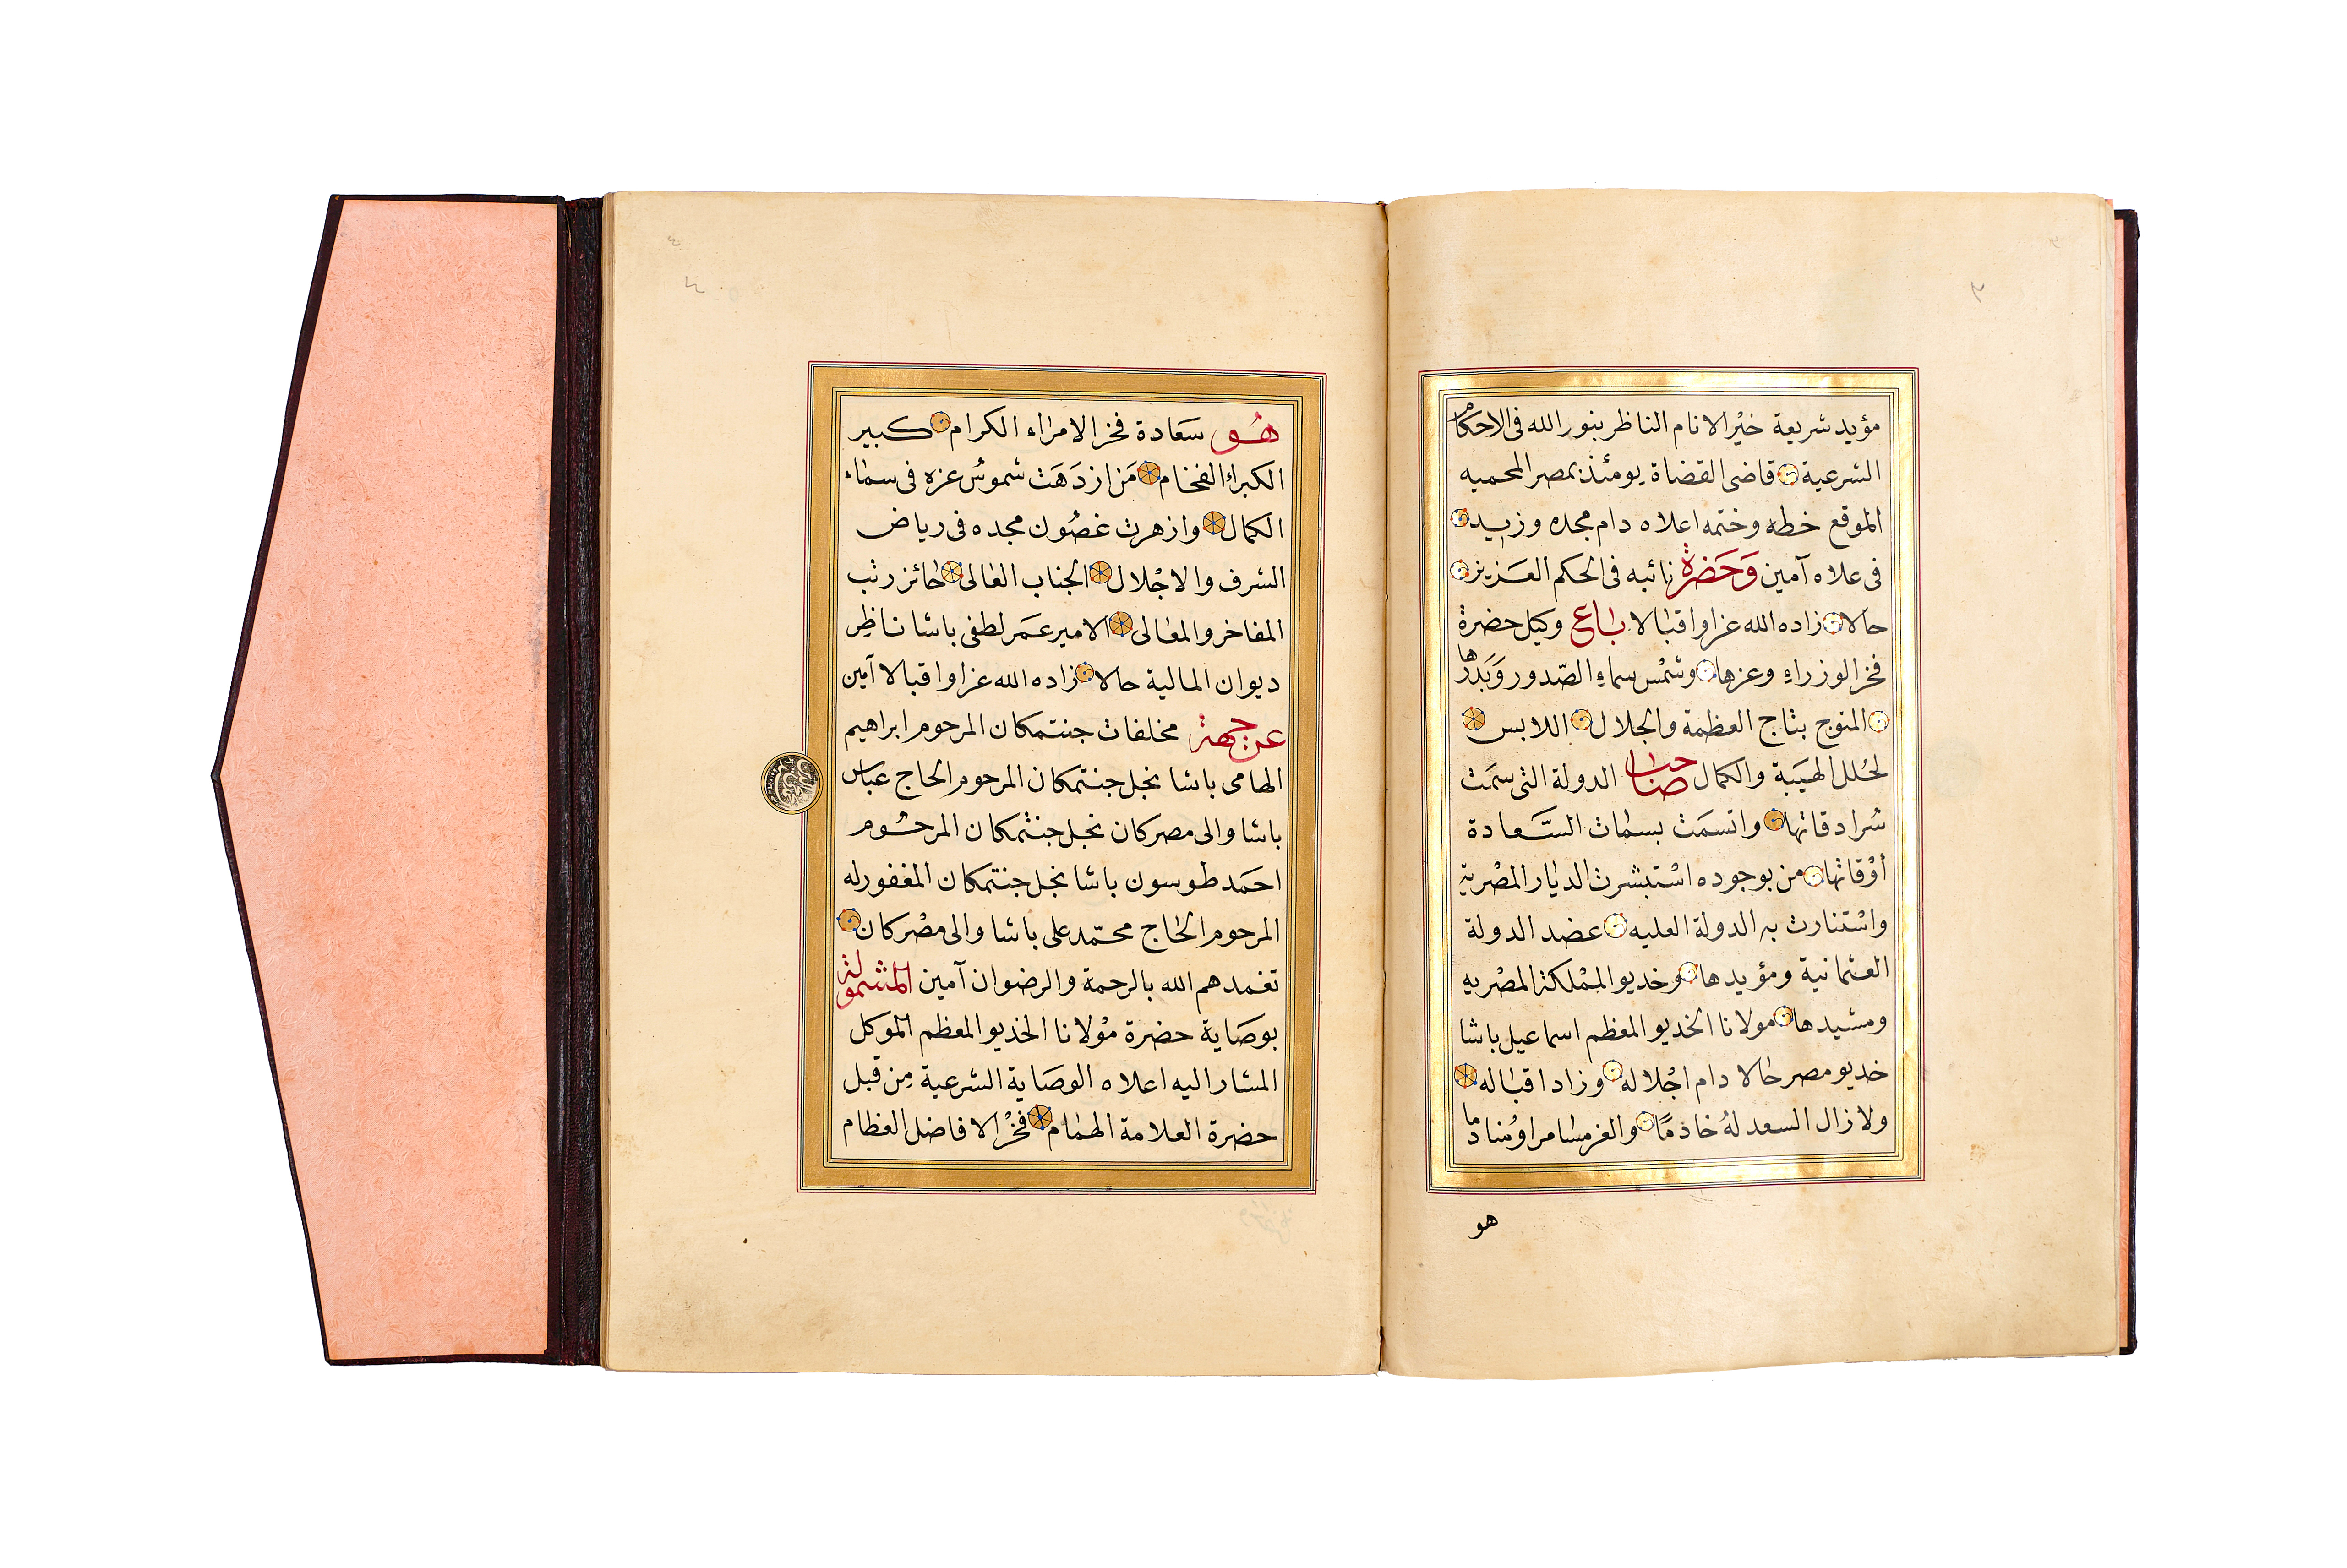 مؤيد شريعة خير الانام الناظر بنور الله فى الاحكام
الشرعية قاضى القضاة يومئذ بمصر المحميه
الموقع خطه وختمه اعلاه دام مجده وزيد
فى علاه آمين وَحَضرة نائبه فى الحكم العزيز
حالا زاده الله عزا واقبالا باع وكيل حضرة
فخر الوزراء وعزها وشمس سماء الصدور وَبَدرها
المتوج بتاج العظمة والجلال اللابس
لحُلل الهيَبة والكمال صاحب الدولة التى سمَت
سُرادقاتها واتسمَت بسمات السَّعادة
أوْقاتها من بوجوده اسْتبشرت الديار المصْرية
واسْتنارت به الدولة العليه عضد الدولة
العثمانية ومؤيدها وخديو المْملكة المصْريه
ومشيدها مولانا الخديو المعظم اسماعيل باشا
خديو مصر حالا دام اجْلاله وزاد اقباله
ولا زال السعد لهُ خادمًا والعز مسامرا ومُنادما
هو
هُو سعَادة فخر الامراء الكرام كبير
الكبراء الفخام مَن ازدَهَت شموسُ عزه فى سماء
الكمال وازهرت غصُون مجده فى رياض
الشرف والاجْلال الجناب العالى حائز رتب
المفاخر والمعالى الامير عمَر لطفى باشا ناظِر
ديوان المالية حالا زاده الله عزا واقبالا آمين
عن جهة مخلفات جنتمكان المرحوم ابراهيم
الهامى باشا نجل جنتمكان المرحوم الحاج عباس
باشا والى مصر كان نجل جنتمكان المرحُوم
احمَد طوسون باشا نجل جنتمكان المغفور له
المرحوم الحاج محمّد على باشا والى مصْر كان
تغمدهم الله بالرحمة والرضوان آمين المشمولة
بوصَاية حضرة موْلانا الخديو المعظم الموكل
المشار اليه اعلاه الوصَاية الشرعية مِن قبل
حضرة العلامة الهمام فخْر الافاضل العظام